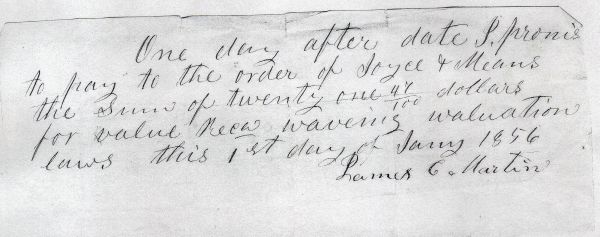 One day after date I promis
to pay to the order of Joyce & Means
the Sum of twenty one 47/100 dollars
for value Recd wavering waluation
laws this 1st day of Jany 1856
James C Martin